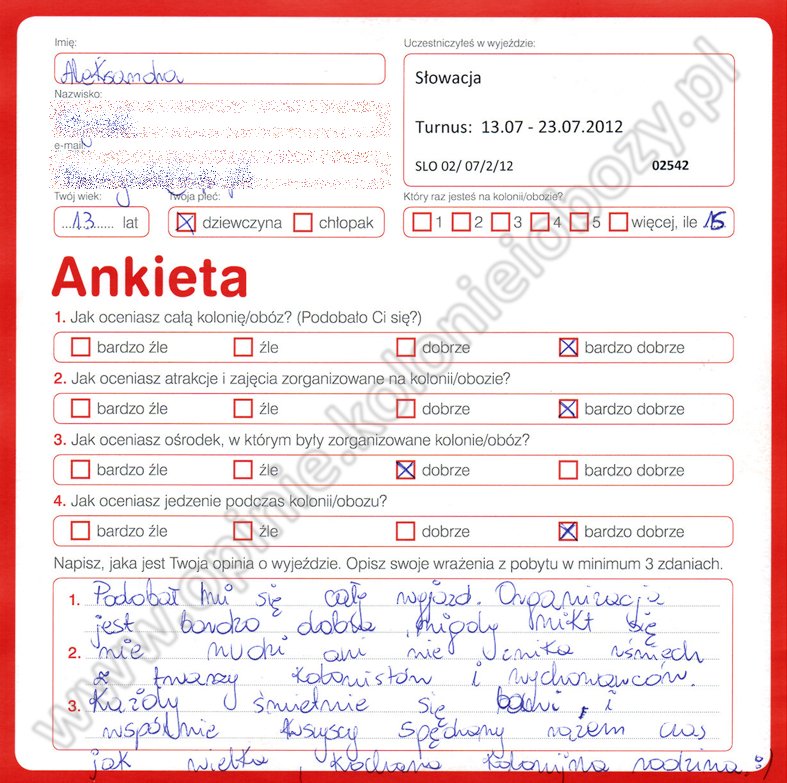 Imię:
Uczestniczyłeś w wyjeździe:
Aleksandra
Słowacja
Nazwisko:
Turnus: 13.07 - 23.07.2012
e-mail
SLO 02/ 07/2/12 02542
Twój wiek: Twoja płeć: Który raz jesteś na kolonii/obozie?
...13...... lat dziewczyna chłopak 1 2 3 4 5 więcej, ile 15
Ankieta
1. Jak oceniasz całą kolonię/obóz? (Podobało Ci się?)
bardzo źle źle dobrze bardzo dobrze
2. Jak oceniasz atrakcje i zajęcia zorganizowane na kolonii/obozie?
bardzo źle źle dobrze bardzo dobrze
3. Jak oceniasz ośrodek, w którym były zorganizowane kolonie/obóz?
bardzo źle źle dobrze bardzo dobrze
4. Jak oceniasz jedzenie podczas kolonii/obozu?
bardzo źle źle dobrze bardzo dobrze
Napisz, jaka jest Twoja opinia o wyjeździe. Opisz swoje wrażenia z pobytu w minimum 3 zdaniach.
1. Podobał mi się cały wyjazd. Organizacja
jest bardzo dobra, nigdy nikt się
2. nie nudzi ani nie znika uśmiech
z twarzy kolonistów i wychowawców.
3. Każdy śmietnie się bawi, i
wspólnie wszyscy spędzamy razem czas
jak wielka, kochana kolonijna rodzina :)
www.opinie.kolonieiobozy.pl